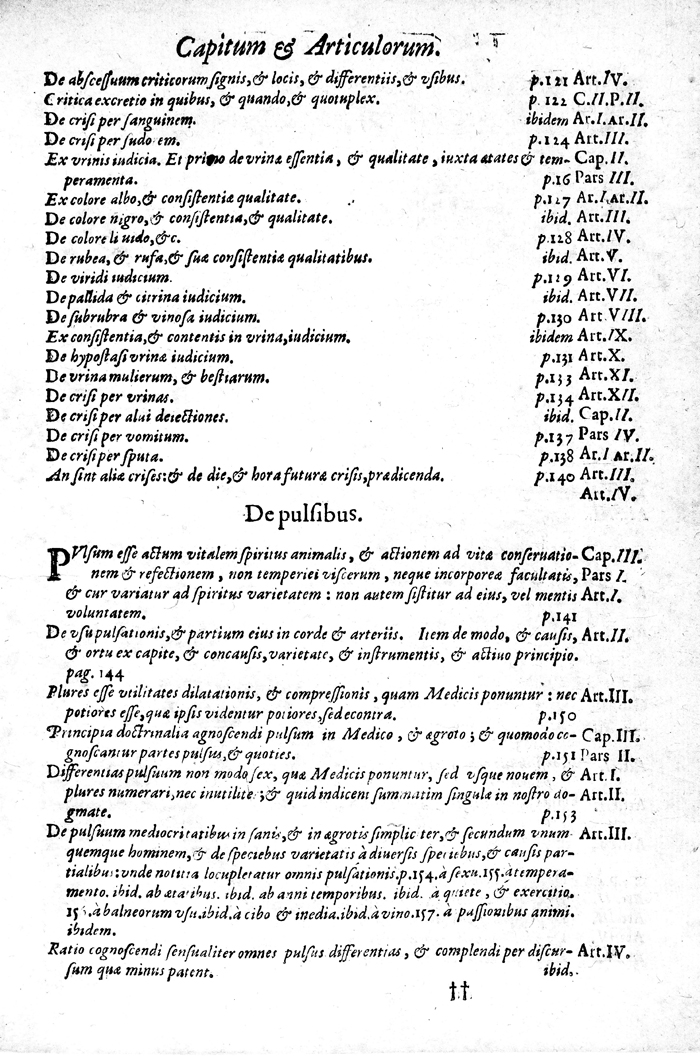 Capitum & Articulorum.
De abscessuum criticorum signis, & locis, & differentiis, & vsibus. p.121 Art.IV.
Critica excretio in quibus, & quando, & quotuplex. p. 122 C.II.P.II.
De crisi per sanguinem. ibidem Ar.I.Ar.II.
De crisi per sudo em. p.124 Art.III.
Ex vrinis iudicia. Et primo de vrinæ essentia, & qualitate, iuxta ætates & tem- Cap.II.
peramenta. p.16 Pars III.
Ex colore albo, & consistentiæ qualitate. p.127 Ar.I.Ar.II.
De colore nigro, & consistentia, & qualitate. ibid. Art.III.
De colore liuido, &c. p.128 Art.IV.
De rubea, & rufa, & suæ consistentiæ qualitatibus. ibid. Art.V.
De viridi iudicium. p.129 Art.VI.
De pallida & citrina iudicium. ibid. Art.VII.
De subrubra & vinosa iudicium. p.130 Art.VIII.
Ex consistentia, & contentis in vrina, iudicium. ibidem Art.IX.
De hypostasi vrinæ iudicium. p.131 Art.X.
De vrina mulierum, & bestiarum. p.133 Art.XI.
De crisi per vrinas. p.134 Art.XII.
De crisi per alui deiectiones. ibid. Cap.II.
De crisi per vomitum. p.137 Pars IV.
De crisi per sputa. p.138 Ar.I Ar.II.
An sint aliæ crises: & de die, & hora futuræ crisis, prædicenda. p.140 Art.III.
Art.IV.
De pulsibus.
PVlsum esse actum vitalem spiritus animalis, & actionem ad vitæ conseruatio- Cap.III.
nem & refectionem, non temperiei viscerum, neque incorporeæ facultatis, Pars I.
& cur variatur ad spiritus varietatem: non autem sistitur ad eius, vel mentis Art.I.
voluntatem. p.141
De vsu pulsationis, & partium eius in corde & arteriis. Item de modo, & causis, Art.II.
& ortu ex capite, & concausis, varietate, & instrumentis, & actiuo principio.
pag. 144
Plures esse vtilitates dilatationis, & compressionis, quam Medicis ponuntur: nec Art.III.
potiores esse, quæ ipsis videntur potiores, sed econtra. p.150
Principia doctrinalia agnoscendi pulsum in Medico, & ægroto; & quomodo co- Cap.III.
gnoscantur partes pulsus, & quoties. p.151 Pars II.
Differentias pulsuum non modo sex, quæ Medicis ponuntur, sed vsque nouem, & Art.I.
plures numerari, nec inutilite ; & quid indicent summatim singulæ in nostro do- Art.II.
gmate. p.153
De pulsuum mediocritatibus in sanis, & in ægrotis simplic ter, & secundum vnum Art.III.
quemque hominem, & de speciebus varietatis à diuersis speciebus, & causis par-
tialibus: vnde notitia locupletatur omnis pulsationis. p.154. à sexu. 155. à tempera-
mento. ibid. ab ætatibus. ibid. ab anni temporibus. ibid. à quiete, & exercitio.
15 . à balneorum vsu. ibid. à cibo & inedia. ibid. à vino. 157. à passionibus animi.
ibidem.
Ratio cognoscendi sensualiter omnes pulsus differentias, & complendi per discur- Art.IV.
sum quæ minus patent. ibid.
††